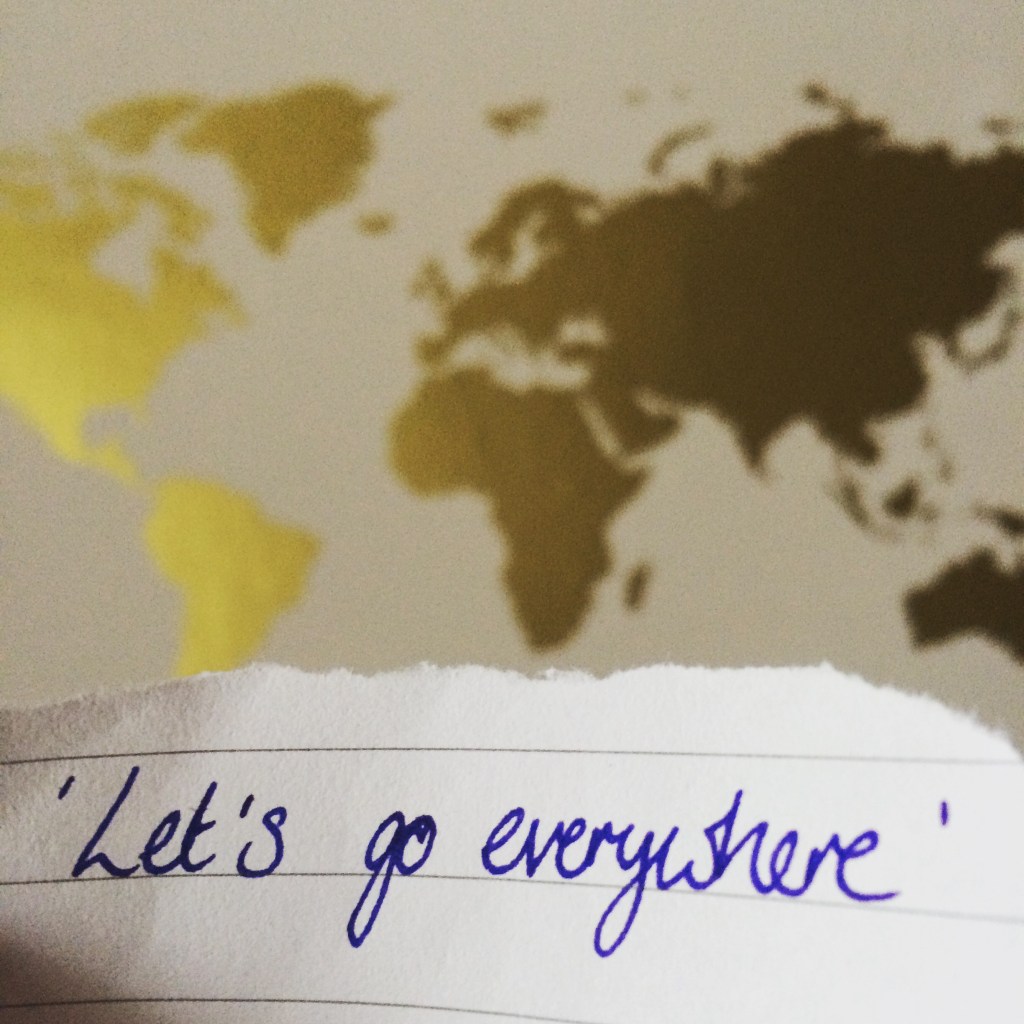 'Let's go everywhere'